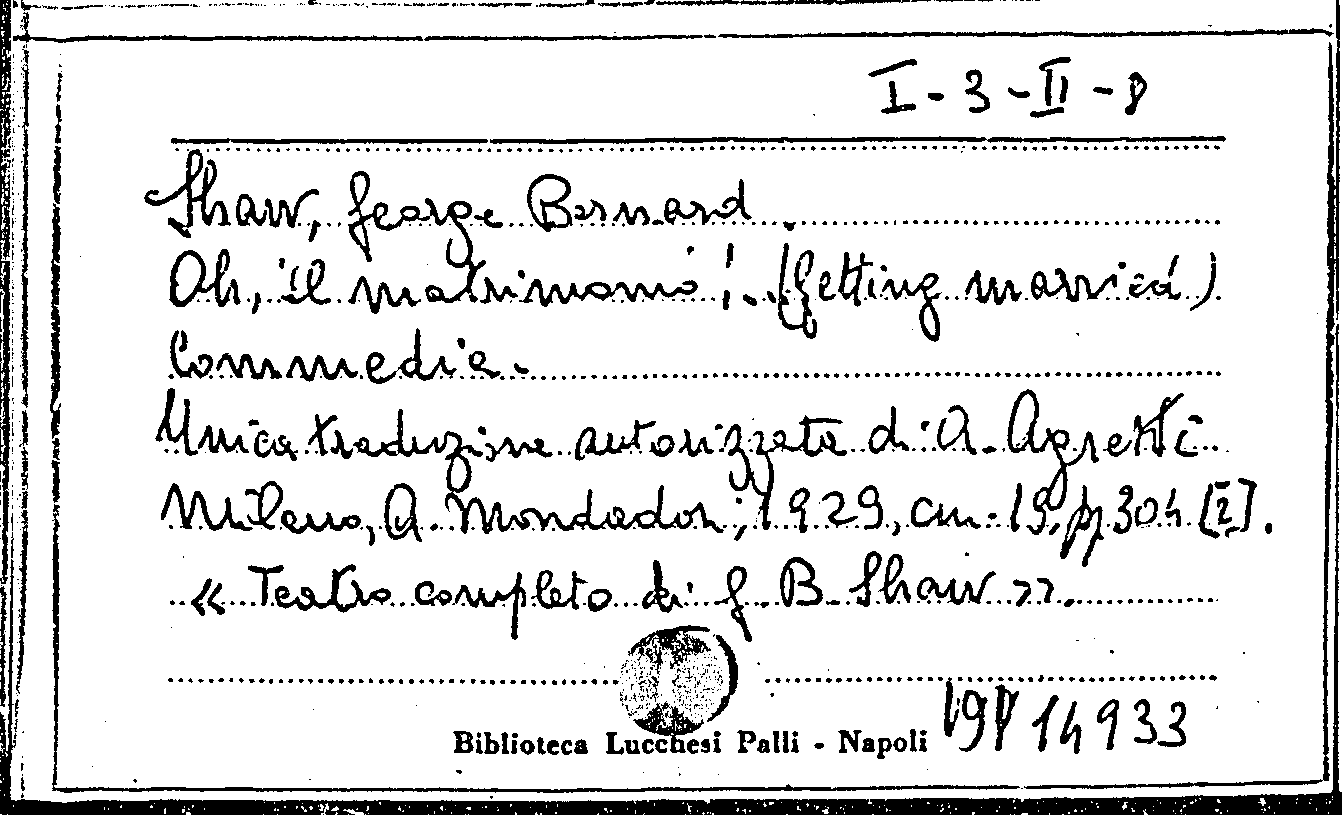 I-3-II-8
Shaw, George Bernard.
Oh, il matrimonio!.. (Getting married)
Commedia.
Unica traduzione autorizzata di A. Agretti
Milano, A. Mondadori, 1929, cm. 19, pp 304 [2].
« Teatro completo di G. B. Shaw ».
Biblioteca Lucchesi Palli - Napoli
14933